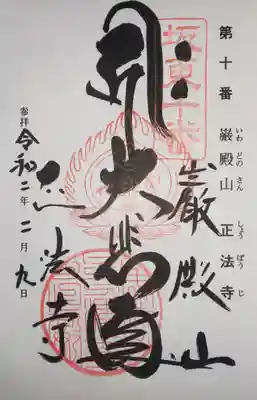 第十番 巌殿山 正法寺
いわ どの さん しょう ぼう じ
坂東十番
大悲殿
巌殿山
正法寺
参拝 令和二年二月九日